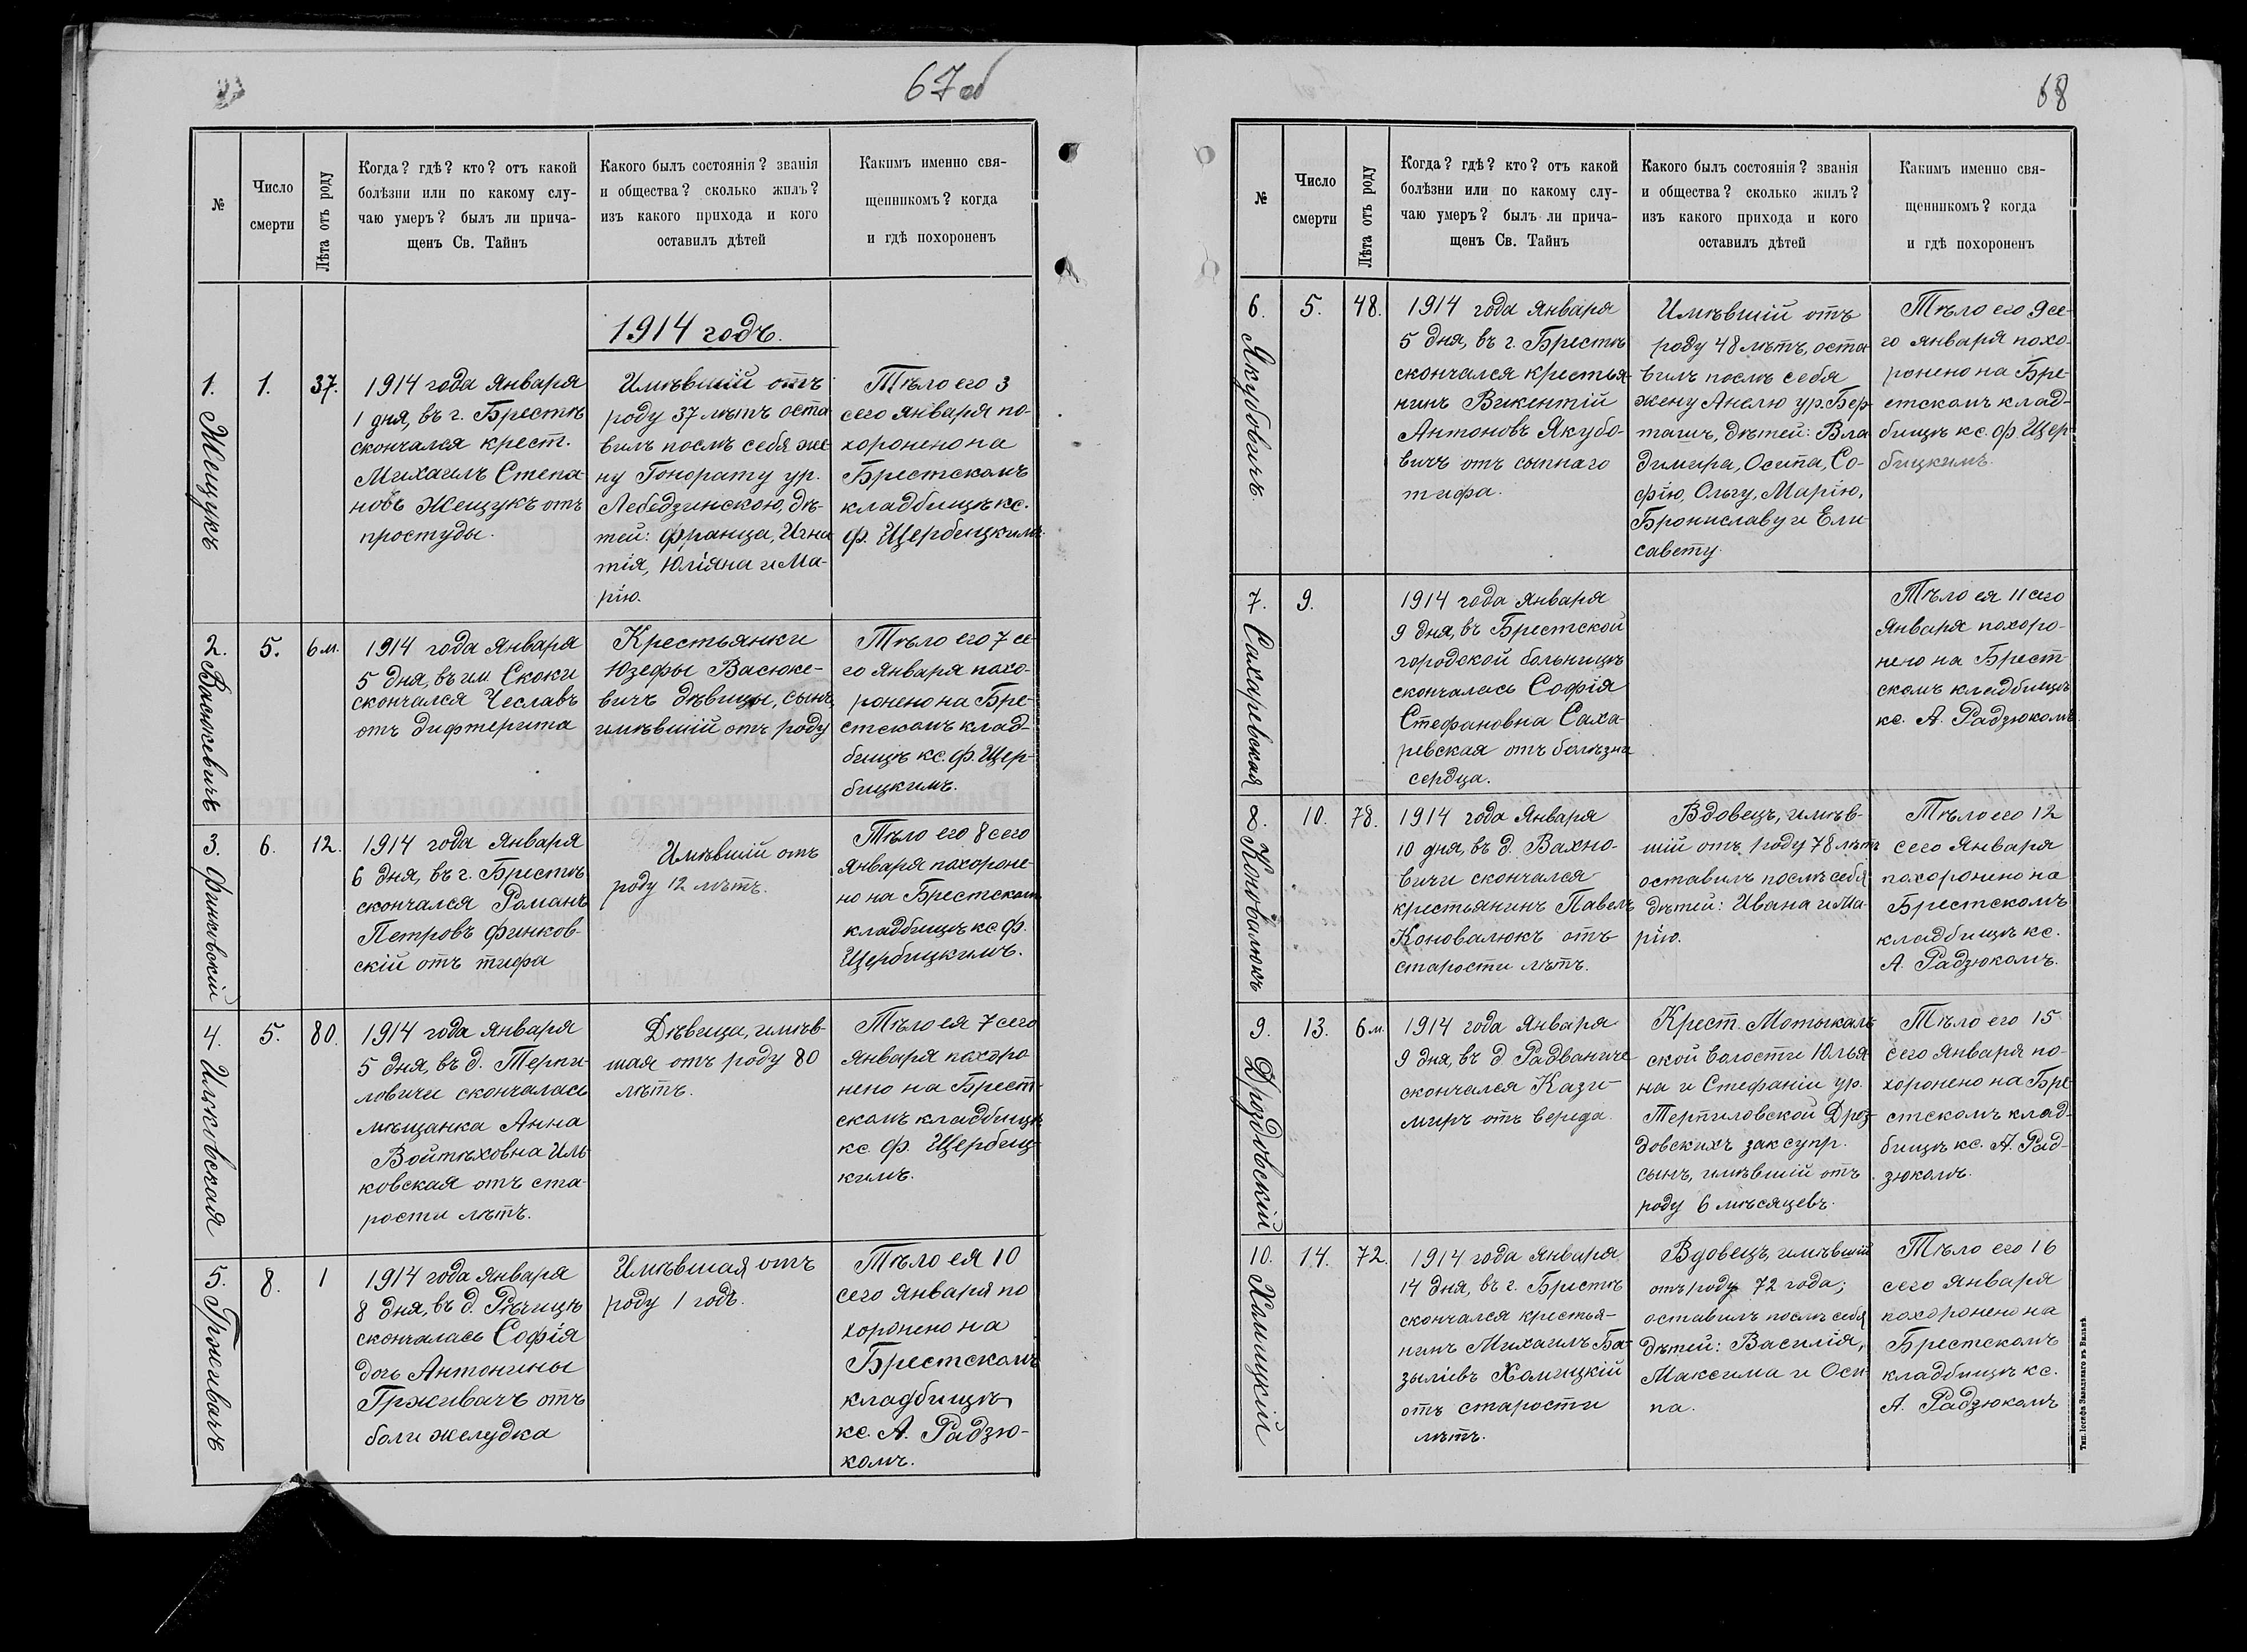 67об
№
Число
смерти
Лѣта отъ роду
Когда? гдѣ? кто? отъ какой
болѣзни или по какому слу-
чаю умеръ? былъ ли прича-
щенъ Св. Тайнъ
Какого былъ состоянія? званія
и общества? сколько жилъ?
изъ какого прихода и кого
оставилъ дѣтей
Какимъ именно свя-
щенникомъ? когда
и гдѣ похороненъ
1914 годъ.
1. Жещукъ
1.
37.
1914 года Января
1 дня, въ г. Брестѣ
скончался крест.
Михаилъ Степа
новъ Жещукъ отъ
простуды.
Имѣвшій отъ
роду 37 лѣтъ оста
вилъ послѣ себя же
ну Гонорату ур.
Лебедзинскою, дѣ-
тей: Франца, Игна
тія, Юліяна и Ма-
рію.
Тѣло его 3
сего Января по-
хоронено на
Брестскомъ
кладбищѣ кс.
Ф. Щербицкимъ.
2. Васюкевичъ
5.
6 м.
1914 года Января
5 дня, въ им Скоки
скончался Чеславъ
отъ дифтерита
Крестьянки
Юзефы Васюке-
вичъ дѣвицы, сынъ,
имѣвшій отъ роду
Тѣло его 7 се-
го Января похо-
ронено на Бре-
стскомъ клад-
бищѣ кс. Ф. Щер-
бицкимъ.
3. Финковскій
6.
12.
1914 года Января
6 дня, въ г. Брестѣ
скончался Романъ
Петровъ Финков-
скій отъ тифа
Имѣвшій отъ
роду 12 лѣтъ.
Тѣло его 8 сего
Января похороне-
но на Брестскомъ
кладбищѣ кс Ф.
Щербицкимъ.
4. Ильковская
5.
80.
1914 года Января
5 дня, въ д. Терпи-
ловичи скончалась
мѣщанка Анна
Войтѣховна Иль-
ковская отъ ста-
рости лѣтъ.
Дѣвица, имѣв-
шая отъ роду 80
лѣтъ.
Тѣло ея 7 сего
Января похоро
нено на Брест-
скомъ кладбищѣ
кс. Ф. Щербиц-
кимъ.
5. Грживачъ
8.
1
1914 года Января
8 дня, въ д. Рѣчицѣ
скончалась Софія
дочь Антонины
Грживачъ отъ
боли желудка
Имѣвшая отъ
роду 1 годъ.
Тѣло ея 10
сего Января по
хоронено на
Брестскомъ
кладбищѣ
кс. А. Радзю-
комъ.
68
№
Число
смерти
Лѣта отъ роду
Когда? гдѣ? кто? отъ какой
болѣзни или по какому слу-
чаю умеръ? былъ ли прича-
щенъ Св. Тайнъ
Какого былъ состоянія? званія
и общества? сколько жилъ?
изъ какого прихода и кого
оставилъ дѣтей
Какимъ именно свя-
щенникомъ? когда
и гдѣ похороненъ
6. Якубовичъ
5.
48.
1914 года Января
5 дня, въ г. Брестѣ
скончался крестья-
нинъ Викентій
Антоновъ Якубо-
вичъ отъ сыпнаго
тифа.
Имѣвшій отъ
роду 48 лѣтъ, оста
вилъ послѣ себя
жену Анелю ур. Бер-
ташъ, дѣтей: Вла
димира, Осипа, Со-
фію, Ольгу, Марію,
Брониславу и Ели
савету.
Тѣло его 9 се-
го Января похо-
ронено на Бре-
стскомъ клад-
бищѣ кс. Ф. Щер-
бицкимъ.
7. Сахаревская
9.
1914 года Января
9 дня, въ Брестской
городской больницѣ
скончалась Софія
Стефановна Саха-
ревская отъ болѣзни
сердца.
Тѣло ея 11 сего
Января похоро-
нено на Брест
скомъ кладбищѣ
кс. А. Радзюкомъ.
8. Коновалюкъ
10.
78.
1914 года Января
10 дня, въ д. Вахно-
вичи скончался
крестьянинъ Павелъ
Коновалюкъ отъ
старости лѣтъ.
Вдовецъ, имѣв-
шій отъ роду 78 лѣтъ
оставилъ послѣ себя
дѣтей: Ивана и Ма-
рію.
Тѣло его 12
сего Января
похоронено на
Брестскомъ
кладбищѣ кс.
А. Радзюкомъ.
9. Дроздовскій
13.
6 м.
1914 года Января
9 дня, въ д. Радваничи
скончался Кази-
миръ отъ вереда.
Крест. Мотыкаль
ской волости Юлья
на и Стефаніи ур.
Терпиловской Дроз-
довскихъ зак супр.
сынъ, имѣвшій отъ
роду 6 мѣсяцевъ.
Тѣло его 15
сего Января по-
хоронено на Бре-
стскомъ клад-
бищѣ кс. А. Рад-
зюкомъ.
10. Хомицкій
14.
72.
1914 года Января
14 дня, въ г. Брестѣ
скончался крестья-
нинъ Михаилъ Ба-
зыліевъ Хомицкій
отъ старости
лѣтъ.
Вдовецъ, имѣвшій
отъ роду 72 года;
оставилъ послѣ себя
дѣтей: Василія,
Максима и Оси
па.
Тѣло его 16
сего Января
похоронено на
Брестскомъ
кладбищѣ кс.
А. Радзюкомъ
Тип. Іосифа Завадзкаго въ Вильнѣ